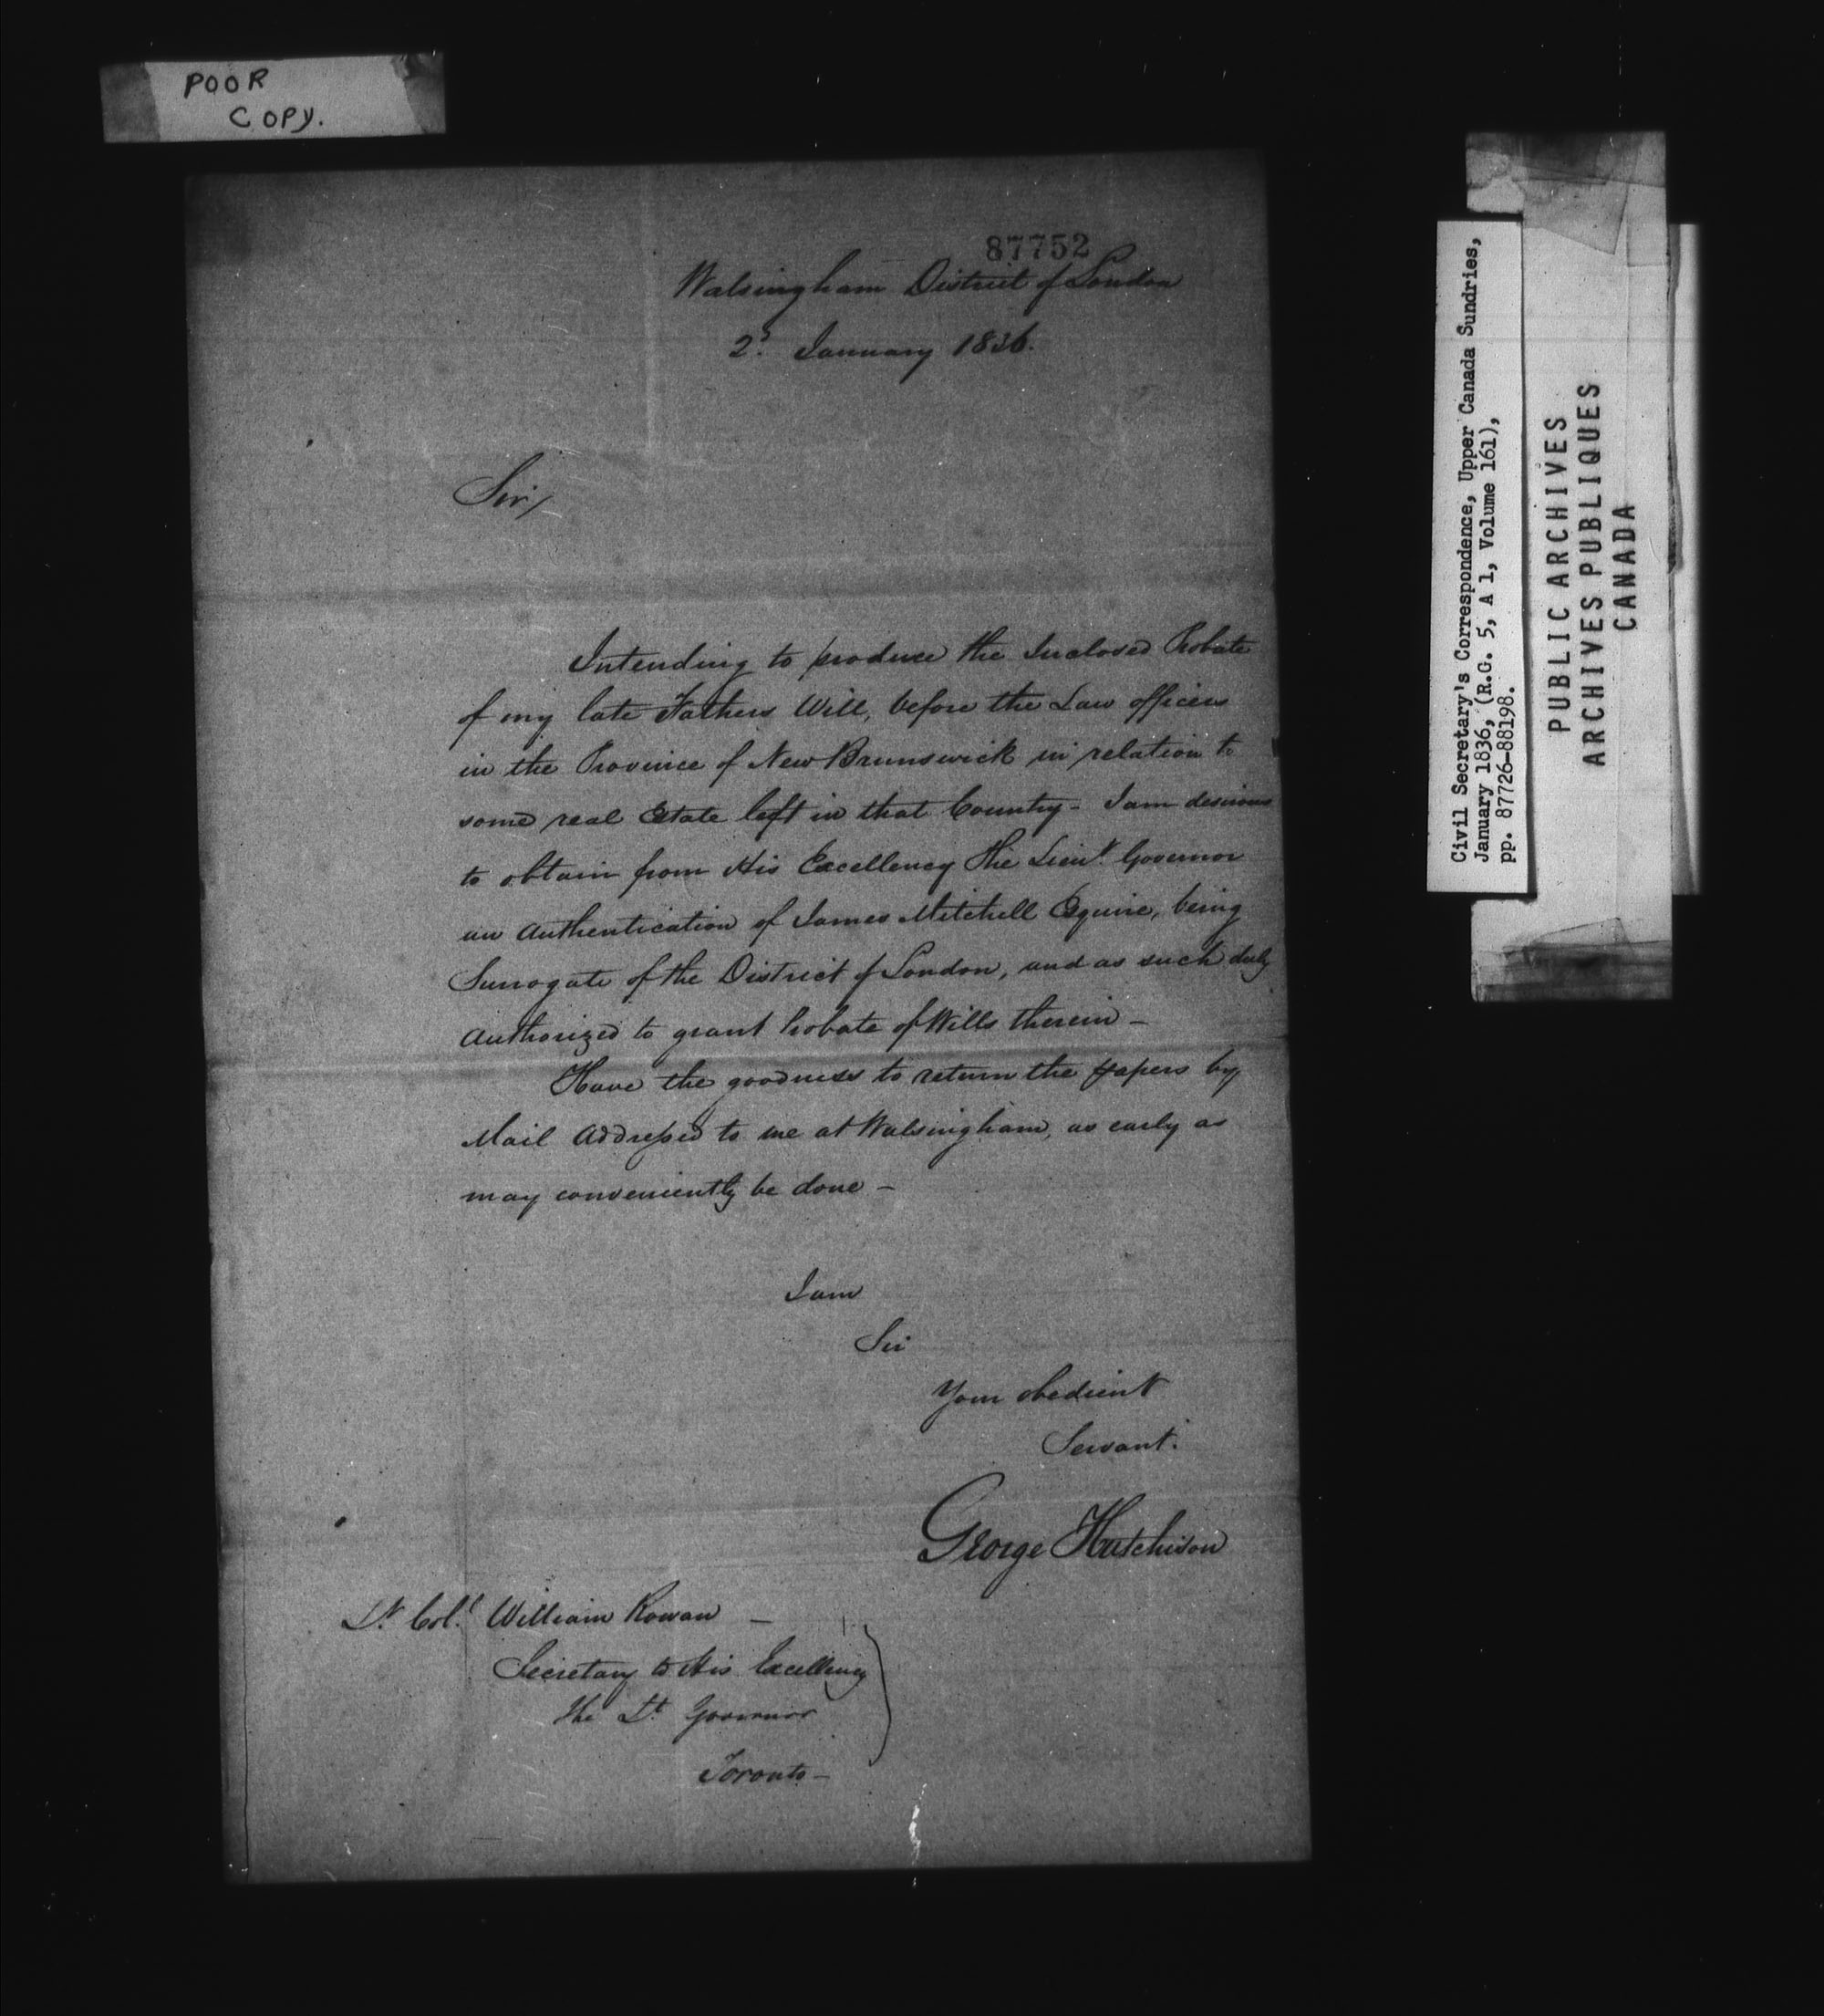 POOR
COPY.
87752
Walsingham District of London
2d. January 1836.
Sir/
Intending to produce the Inclosed Probate
of my late Fathers Will, before the Law officers
in the Province of New Brunswick in relation to
some real Estate left in that Country - I am desirous
to obtain from His Excellency The Lieut. Governor
an Authentication of James Mitchell Esquire, being
Surrogate of the District of London, and as such duly
Authorized to grant Probate of Wills therein -
Have the goodness to return the papers by
Mail Addressed to me at Walsingham, as early as
may conveniently be done -
I am
Sir
Your obedient
Servant.
George Hutchison
Lt. Coll. William Rowan -
Secretary to His Excellency
the Lt. Governor
Toronto -
Civil Secretary's Correspondence, Upper Canada Sundries,
January 1836, (R.G. 5, A 1, Volume 161),
pp. 87726-88198.
PUBLIC ARCHIVES
ARCHIVES PUBLIQUES
CANADA